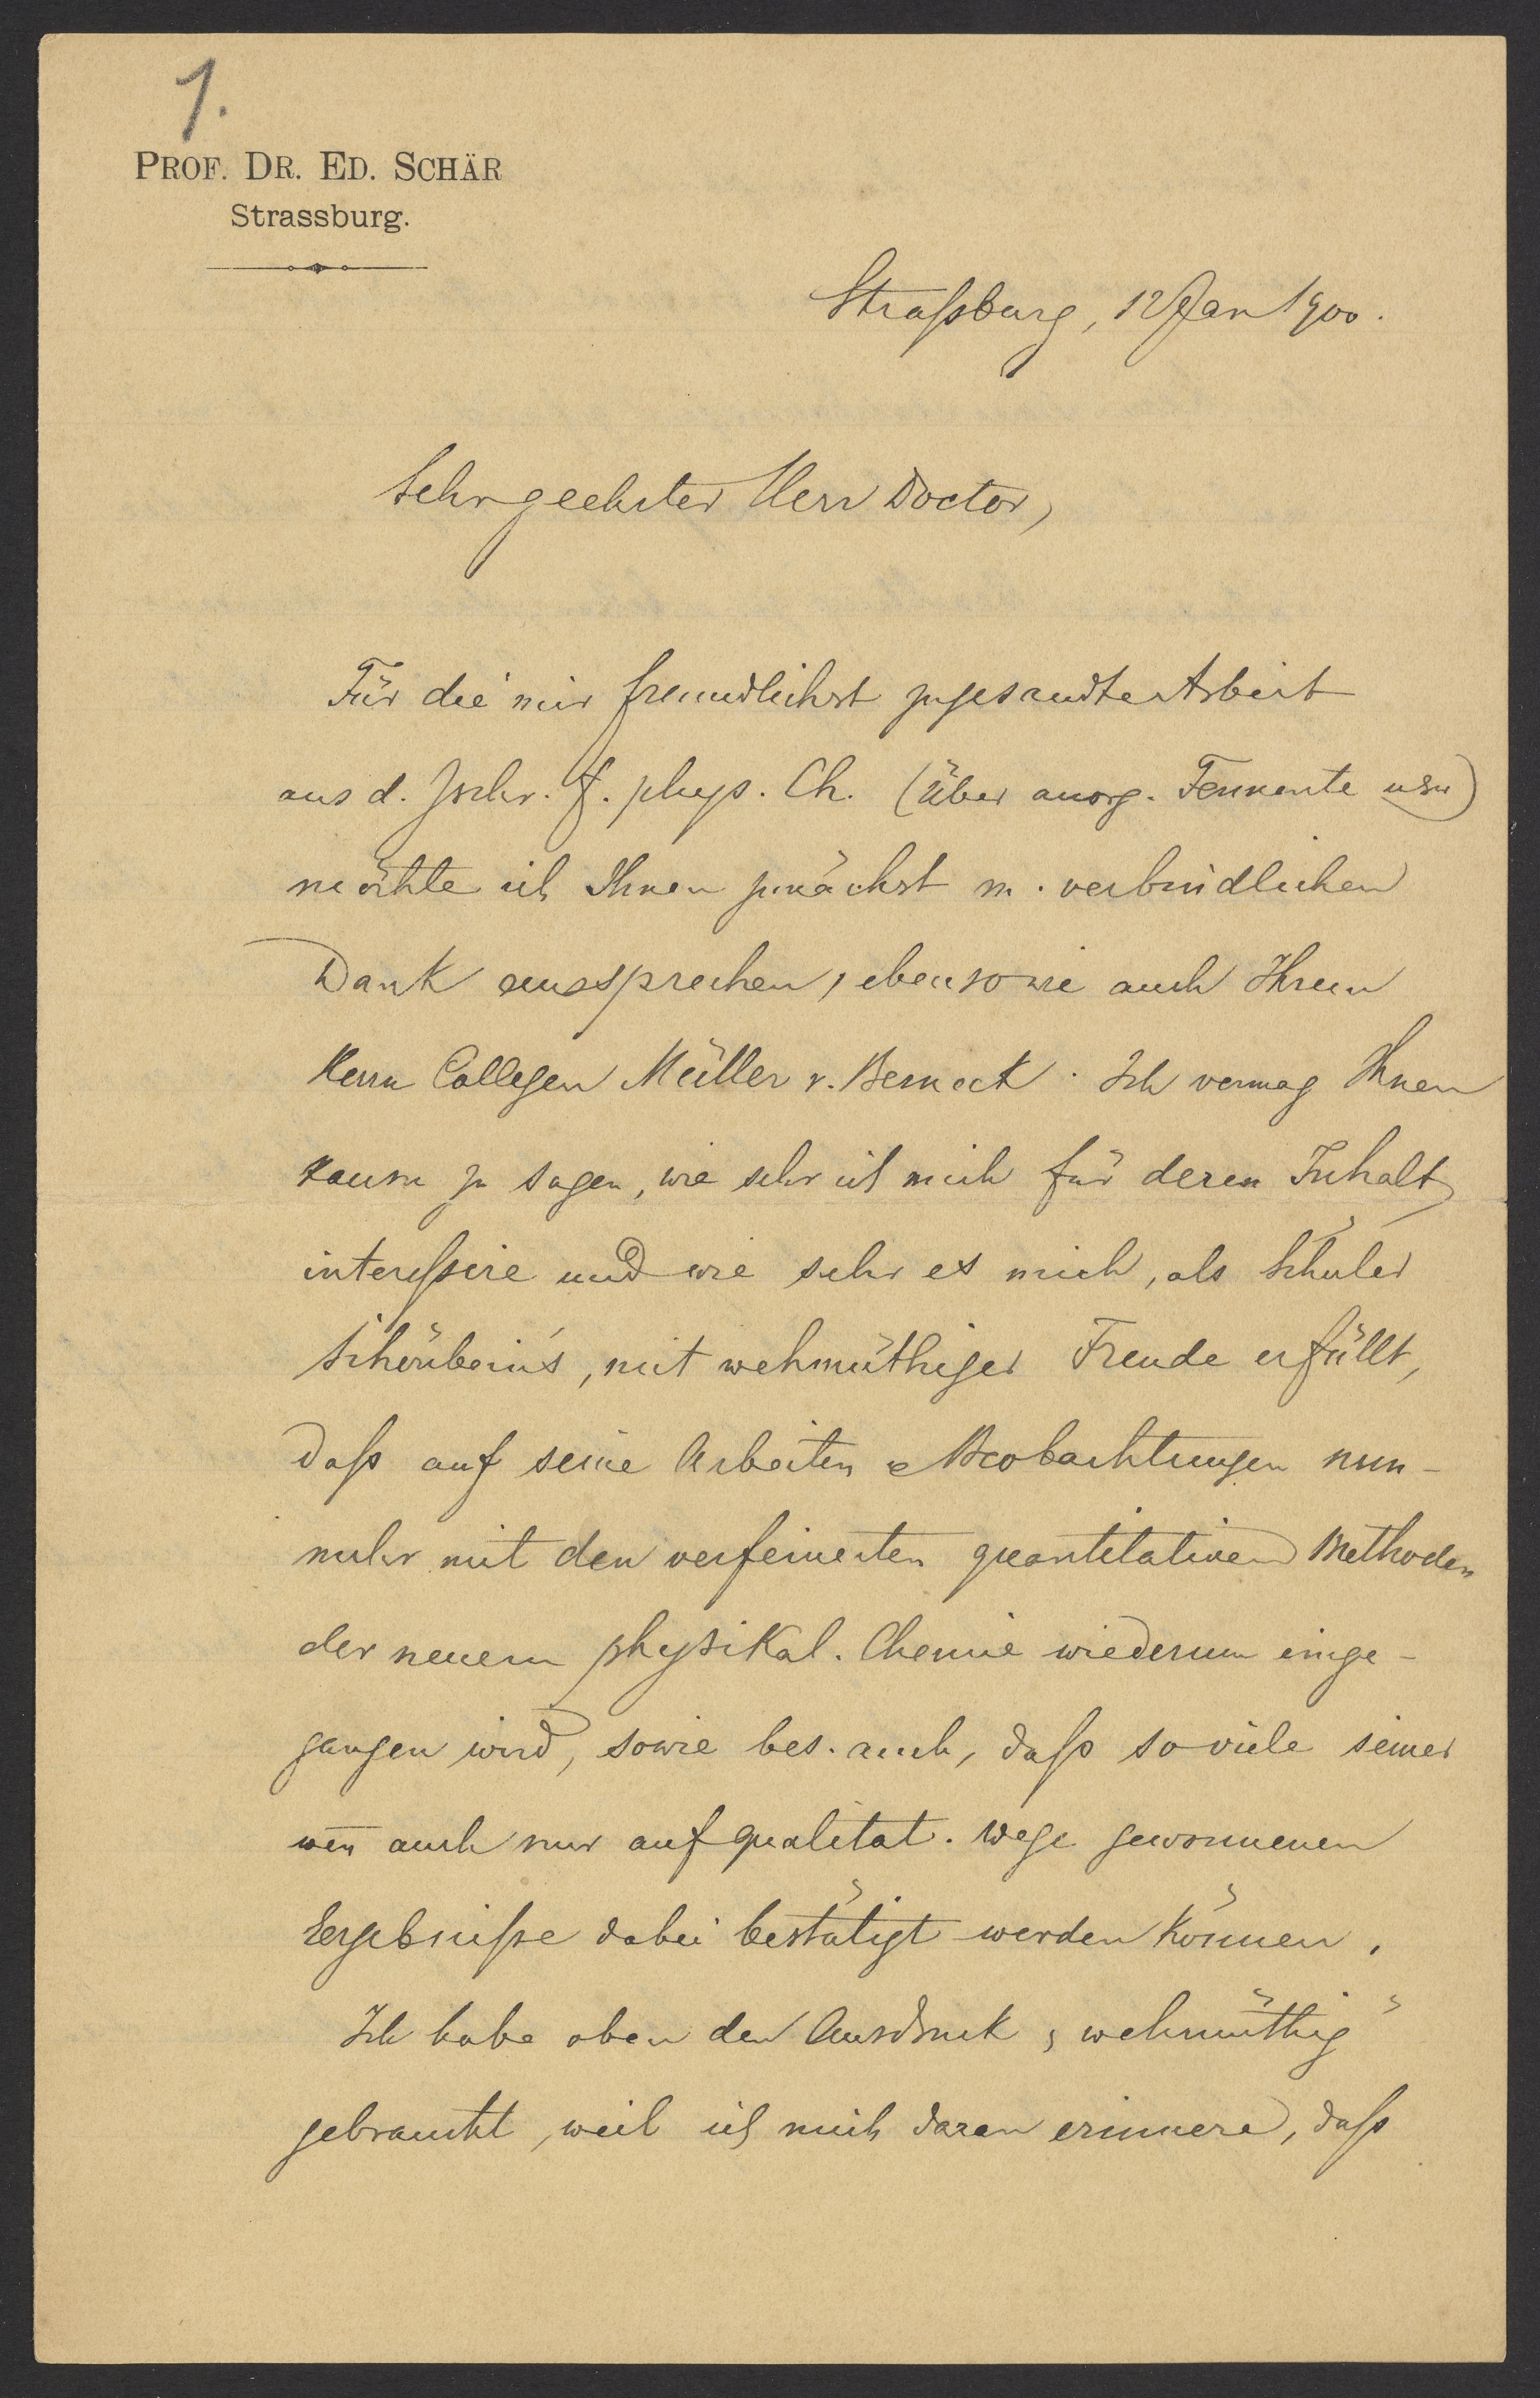 1.
PROF. DR. ED. SCHÄR
Strassburg.
Straßburg, 12 Jan 1900.
Sehrgeehrter Herr Doctor,
Für die mir freundlichst zugesandte Arbeit
aus d. Zschr. f. phys. Ch. (Über anorg. Fermente usw)
möchte ich Ihnen zunächst m. verbindlichen
Dank aussprechen, ebensowie auch Ihrem
Herrn Collegen Müller v. Berneck. Ich vermag Ihnen
kaum zu sagen, wie sehr ich mich für deren Inhalt
interessire und wie sehr es mich, als Schüler
Schönbein's, mit wehmüthiger Freude erfüllt,
daß auf seine Arbeiten & Beobachtungen nun-
mehr mit den verfeinerten quantitativen Methoden
der neuern physikal. Chemie wiederum einge-
gangen wird, sowie bes. auch, daß so viele seiner
weñ auch nur auf qualitat. Wege gewonnenen
Ergebniße dabei bestätigt werden können.
Ich habe oben den Ausdruck „wehmüthig"
gebraucht, weil ich mich daran erinnere, daß